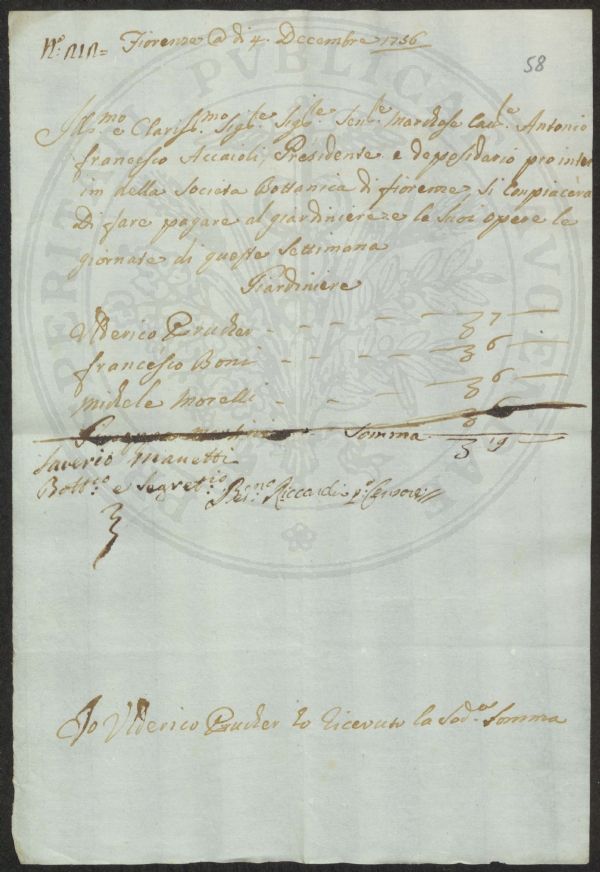 Fiorenze @ di 4. Decembre 1756
58
Ill.mo e Clariss.mo Sig.re Sig.re Sen.re Marchese Cau.re Antonio
francesco Acciaioli, Presidente e depositario pro inter
im della Societa Bottanica di fiorenze, si Conpiacera
Di fare pagare al giardiniere e le Suoi opere le
giornate di queste Settimana
Giardiniere
Vlderico Prucker - - - - 7
francesco Boni - - - - 6
Michele Morelli - - - - 6
Somma 19
Saverio Manetti
Bott.co e Segret.rio Riccardi p.o Censore
Io Vlderico Prucker ho Riceuuto la Sod.a Somma